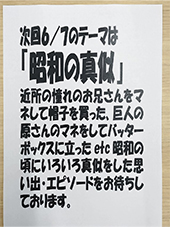 次回6／7のテーマは
「昭和の真似」
近所の憧れのお兄さんを
マネして帽子を買った、巨人の
原さんのマネをしてバッター
ボックスに立った etc 昭和の
頃にいろいろ真似をした思
い出・エピソードをお待ちし
ております。